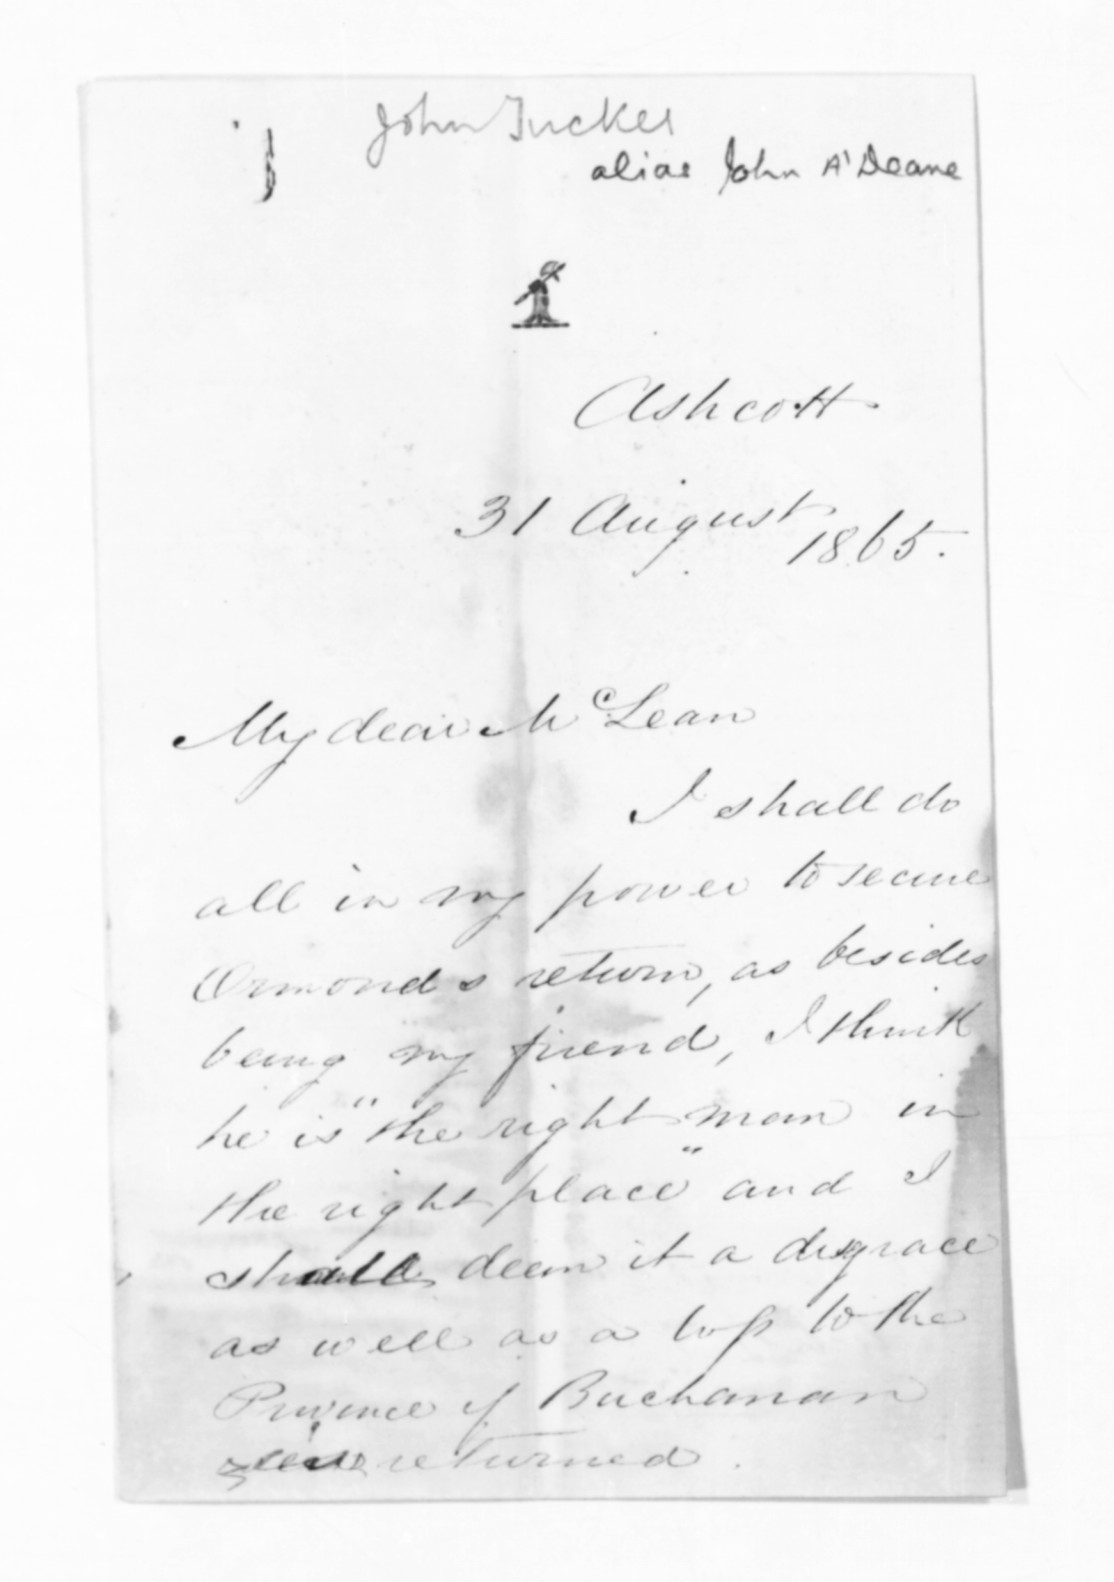 John Tucker
alias John A'Deane
Ashcott
31 August
1865.
My dear McLean
I shall do
all in my power to secure
Ormonds return, as besides
being my friend, I think
he is "the right man in
the right place" and I
shall deem it a disgrace
as well as a loss to the
Province if Buchanan
is returned.